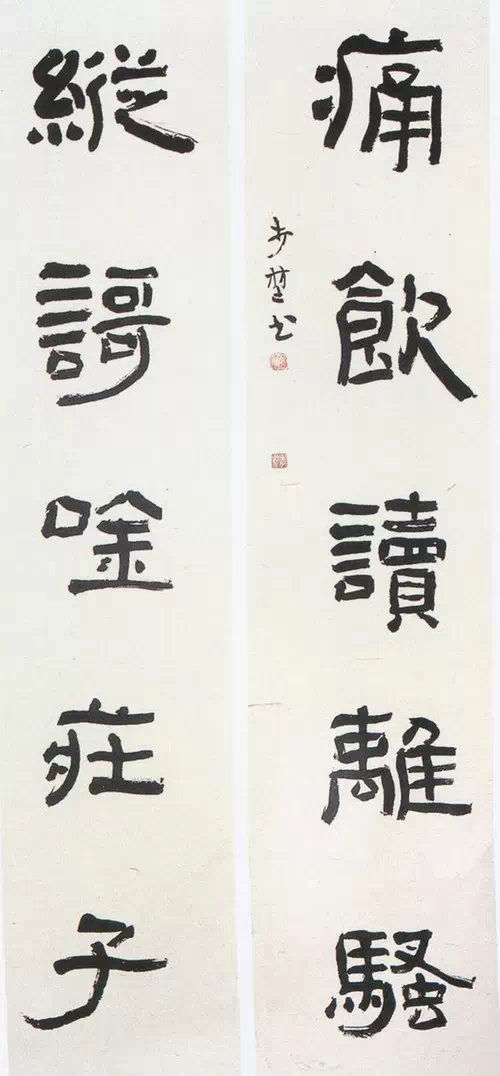 痛飲讀離騷
书
縱謌唫莊子